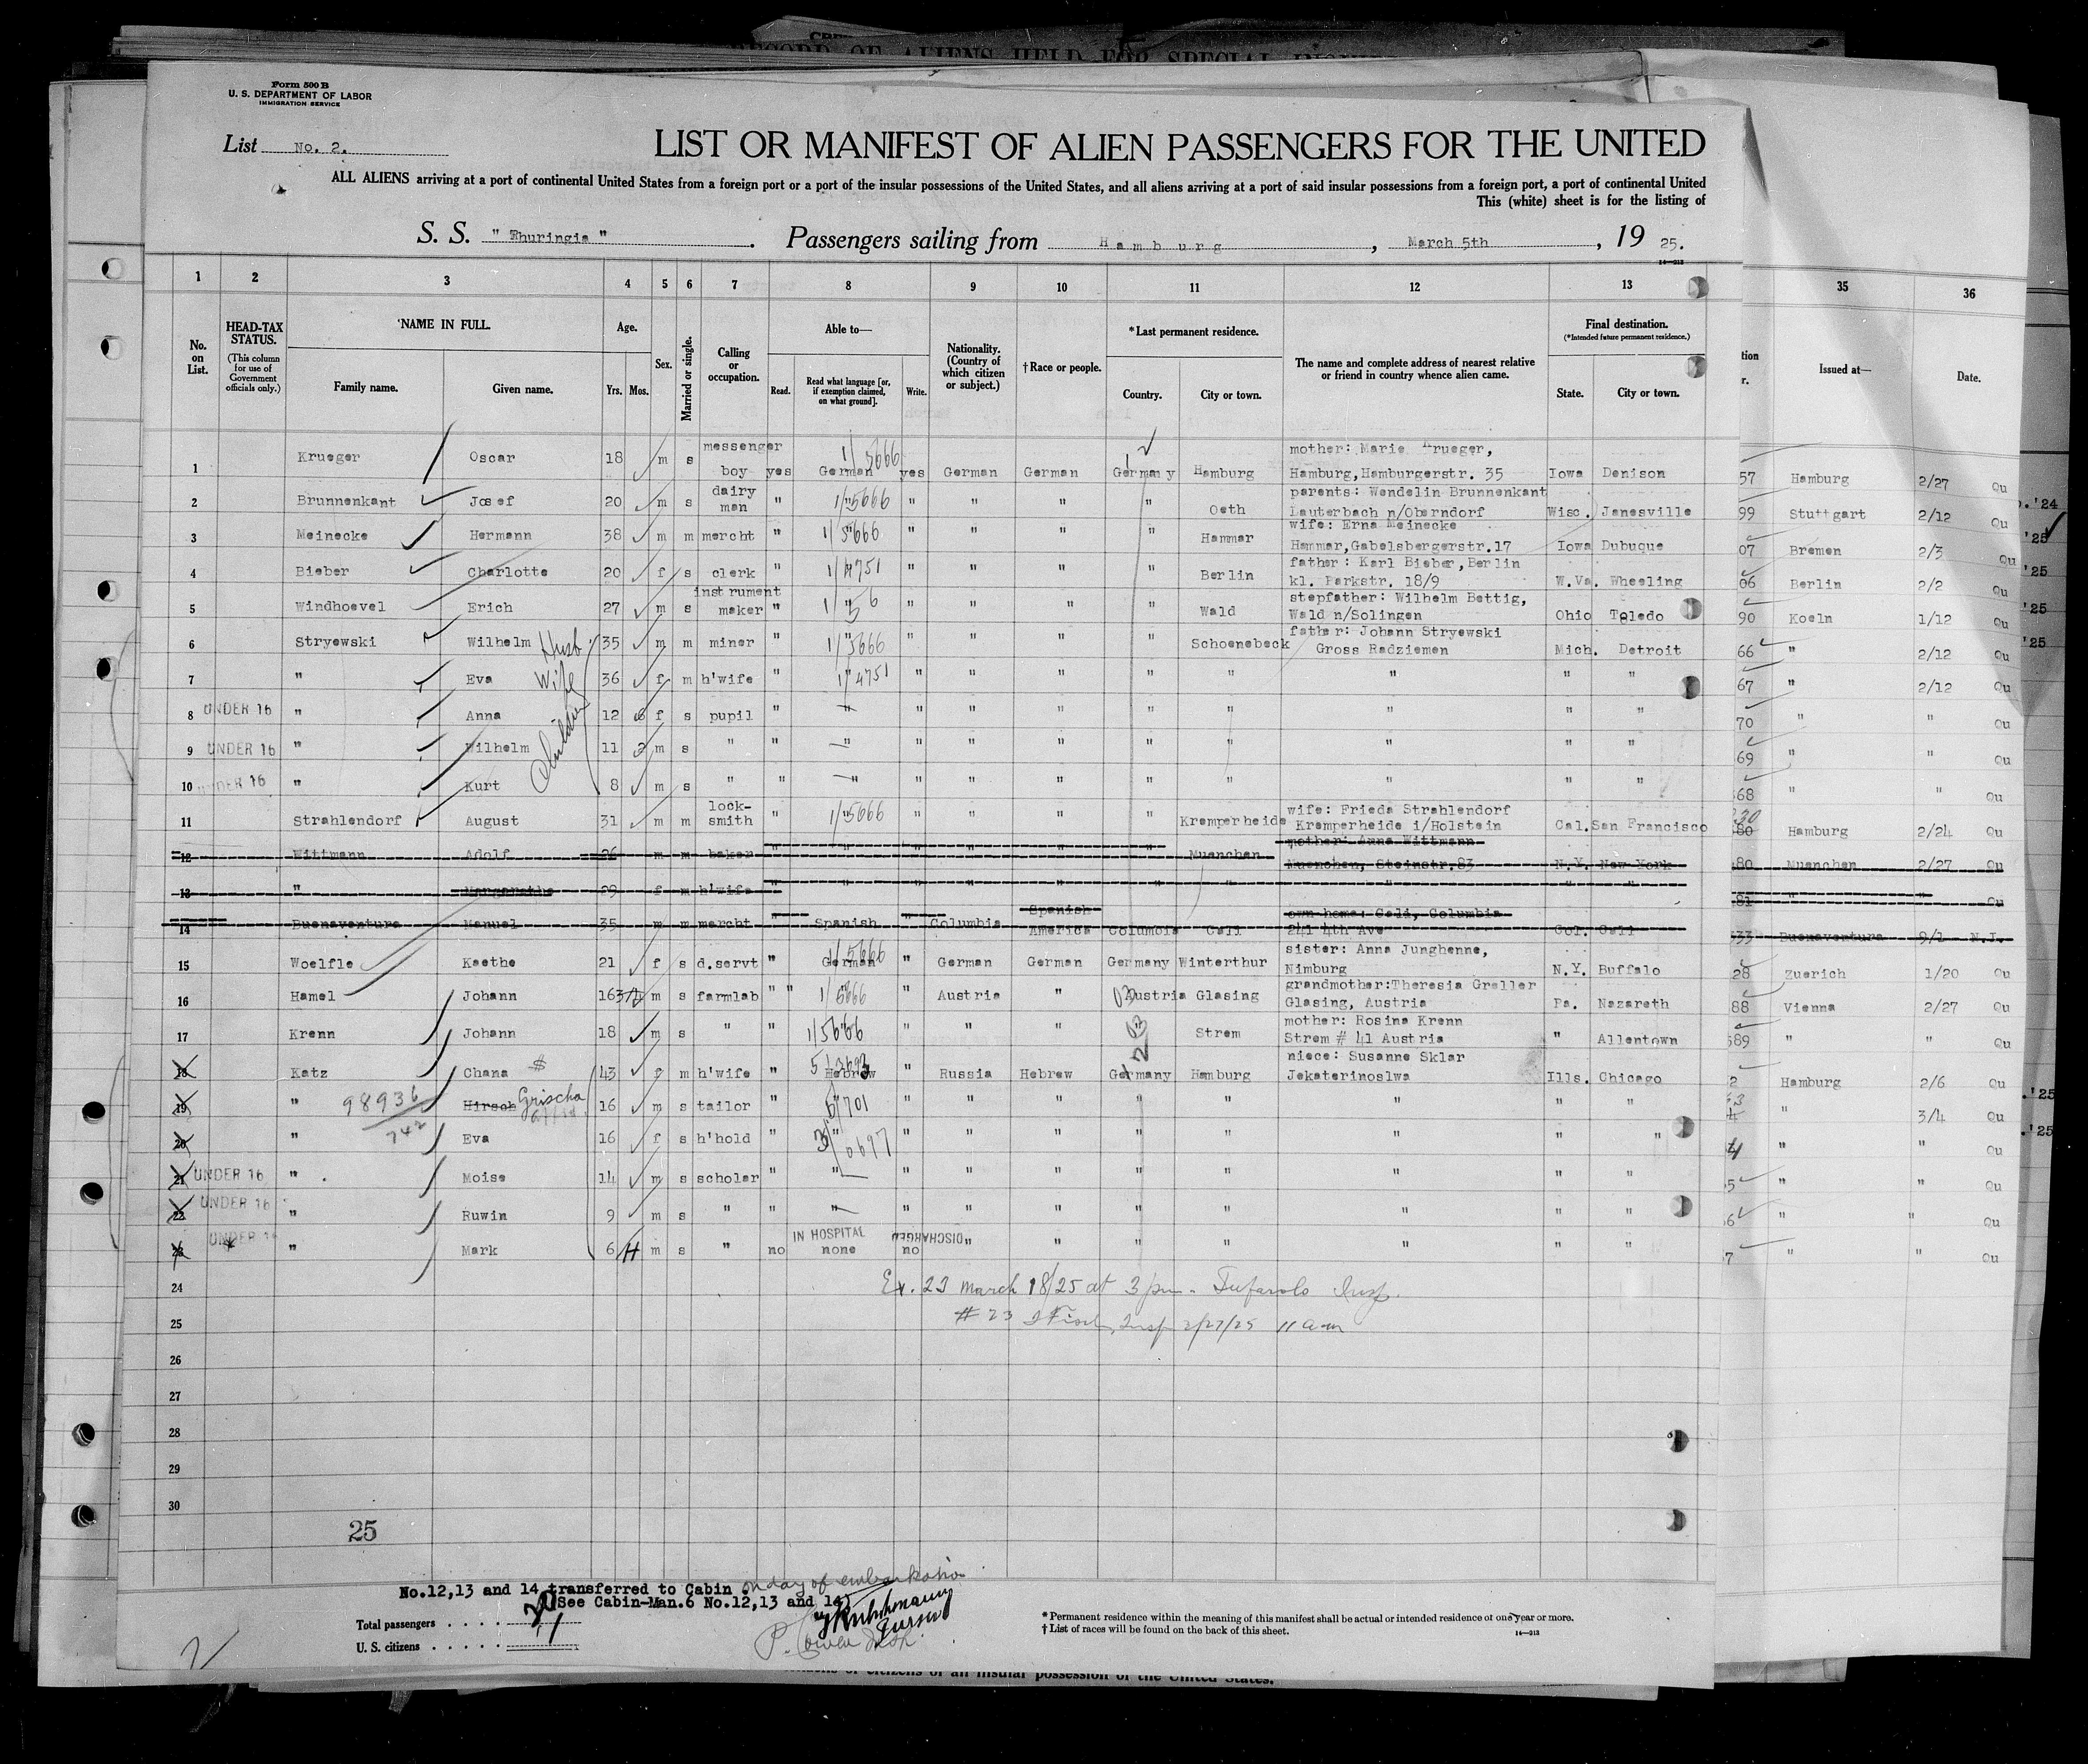 RECORD OF ALIENS HELD FOR SPECIAL
Form 500 B
U. S. DEPARTMENT OF LABOR
IMMIGRATION SERVICE
List No. 2.
LIST OR MANIFEST OF ALIEN PASSENGERS FOR THE UNITED
ALL ALIENS arriving at a port of continental United States from a foreign port or a port of the insular possessions of the United States, and all aliens arriving at a port of said insular possessions from a foreign port, a port of continental United
This (white) sheet is for the listing of
S. S. " Thuringia ". Passengers sailing from Hamburg, March 5th, 19 25.
1 2 3 4 5 6 7 8 9 10 11 12 13 35 36
No. on List. HEAD-TAX STATUS. (This column for use of Government officials only.) NAME IN FULL. Family name. Given name. Age. Yrs. Mos. Sex. Married or single. Calling or occupation. Able to— Read. Read what language [or, if exemption claimed, on what ground]. Write. Nationality. (Country of which citizen or subject.) †Race or people. *Last permanent residence. Country. City or town. The name and complete address of nearest relative or friend in country whence alien came. Final destination. (*Intended future permanent residence.) State. City or town. Issued at— Date.
1 Krueger Oscar 18 m s messenger boy yes German 1/5666 yes German German Germany Hamburg mother: Marie Krueger, Hamburg, Hamburgerstr. 35 Iowa Denison 57 Hamburg 2/27 Qu
2 Brunnenkant Josef 20 m s dairy man " " 1/5666 " " " " Oeth parents: Wendelin Brunnenkant Lauterbach n/Oberndorf Wisc. Janesville 99 Stuttgart 2/12 Qu
3 Meinecke Hermann 38 m m mercht " " 1/5666 " " " " Hammar wife: Erna Meinecke Hammar, Gabelsbergerstr.17 Iowa Dubuque 07 Bremen 2/3 Qu
4 Bieber Charlotte 20 f s clerk " " 1/4751 " " " " Berlin father: Karl Bieber, Berlin kl. Parkstr. 18/9 W.Va. Wheeling 06 Berlin 2/2 Qu
5 Windhoevel Erich 27 m s instrument maker " " " " " " Wald stepfather: Wilhelm Bettig, Wald n/Solingen Ohio Toledo 90 Koeln 1/12 Qu
6 Stryewski Wilhelm Husb 35 m m miner " " 1/5666 " " " " Schoenebeck father: Johann Stryewski Gross Radziemen Mich. Detroit 66 " 2/12 Qu
7 " Eva Wife 36 f m h'wife " " 1/4751 " " " " " " " " 67 " 2/12 Qu
8 UNDER 16 " Anna Children 12 6 f s pupil " " " " " " " " " " 70 " " Qu
9 UNDER 16 " Wilhelm 11 2 m s " " " " " " " " " " " 69 " " Qu
10 UNDER 16 " Kurt 8 m s " " " " " " " " " " " 68 " " Qu
11 Strahlendorf August 31 m m lock-smith " " 1/5666 " " " " Kremperheide wife: Frieda Strahlendorf Kremperheide i/Holstein Cal. San Francisco 80 Hamburg 2/24 Qu
12 Wittmann Adolf 26 m m baker " " " " " " Muenchen mother: Anna Wittmann Muenchen, Steinstr.83 N.Y. New York 80 Muenchen 2/27 Qu
13 " Margarethe 29 f m h'wife " " " " " " " " " " 81 " " Qu
14 Buenaventura Manuel 35 m m mercht " Spanish " Columbia Spanish America Columbia Cali own home: Cali, Columbia 241 4th Ave Col. Cali 33 Buenaventura 9/1 N.I.
15 Woelfle Kaethe 21 f s d.servt " German 1/5666 " German German Germany Winterthur sister: Anna Junghenne, Nimburg N.Y. Buffalo 28 Zuerich 1/20 Qu
16 Hamel Johann 16 m s farmlab " " 1/5666 " Austria " Austria Glasing grandmother: Theresia Greller Glasing, Austria Pa. Nazareth 88 Vienna 2/27 Qu
17 Krenn Johann 18 m s " " " 1/5666 " " " " Strem mother: Rosina Krenn Strem # 41 Austria " Allentown 89 " " Qu
18 Katz Chana 43 f m h'wife " Hebrew " Russia Hebrew Germany Hamburg niece: Susanne Sklar Jekaterinoslwa Ills. Chicago 2 Hamburg 2/6 Qu
19 " 98936/742 Hirsch Grischa 16 m s tailor " " " " " " " " " " " 3/4 Qu
20 " Eva 16 f s h'hold " " " " " " " " " " " " Qu
21 UNDER 16 " Moise 14 m s scholar " " " " " " " " " " 5 " " Qu
22 UNDER 16 " Ruwin 9 m s " " " " " " " " " " " 6 " " Qu
23 UNDER 16 " Mark 6 m s " no IN HOSPITAL none no DISCHARGED " " " " " " " 7 " " Qu
24 Ex. 23 March 18/25 at 3 pm. Insp.
25 # 23 Insp 11 am
26
27
28
29
30
25
No.12,13 and 14 transferred to Cabin on day of embarkation
(See Cabin-Man.6 No.12,13 and 14)
Total passengers
U. S. citizens
* Permanent residence within the meaning of this manifest shall be actual or intended residence of one year or more.
† List of races will be found on the back of this sheet.
14—213
citizens of an insular possession of the United States.